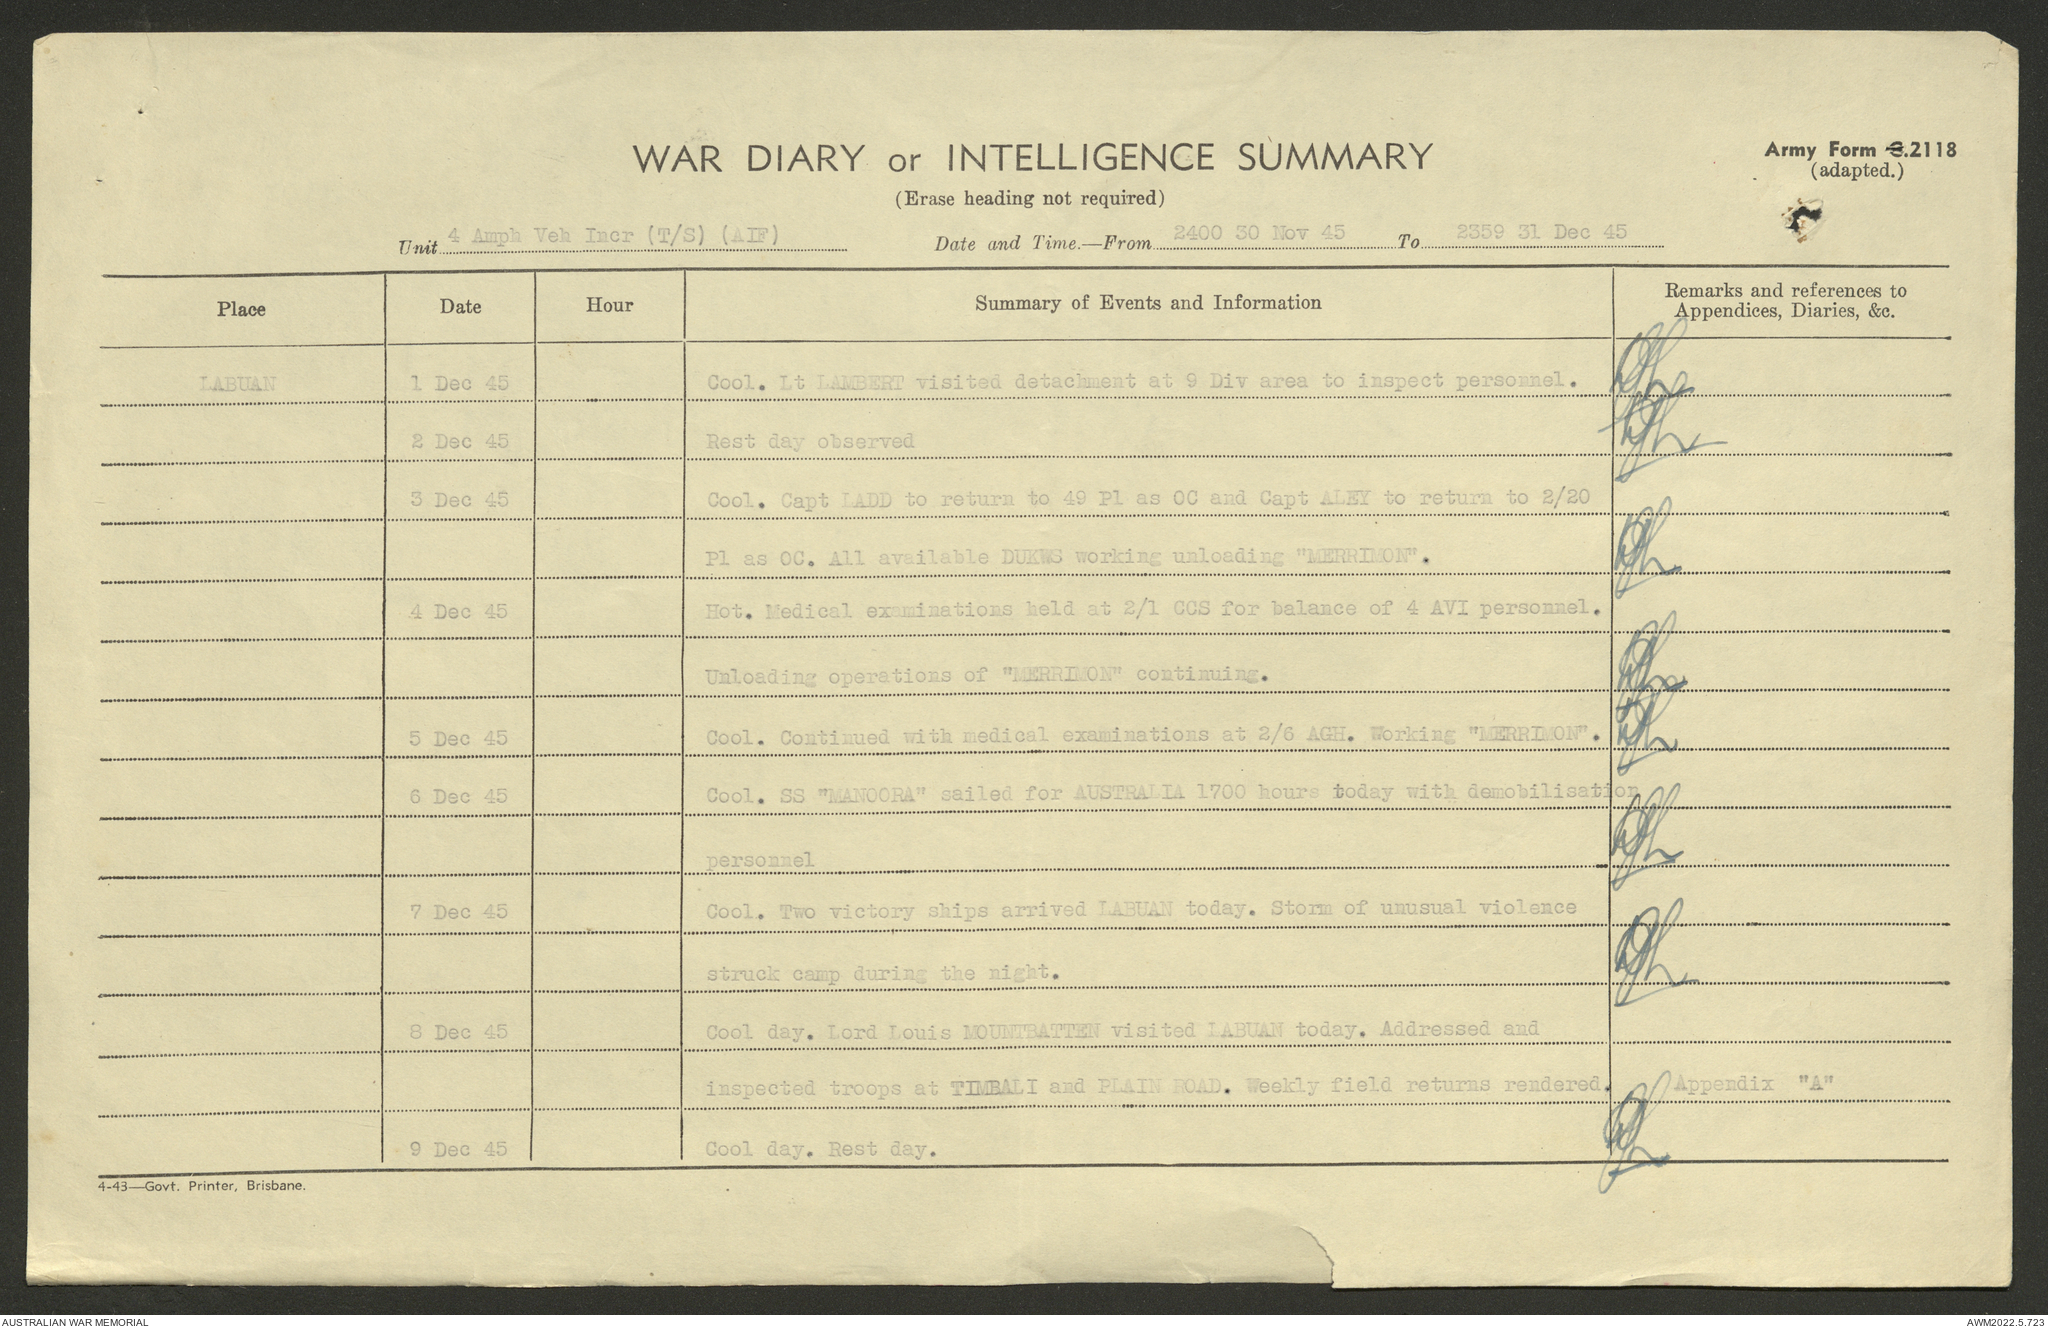 WAR DIARY or INTELLIGENCE SUMMARY
(Erase heading not required)
Army Form C.2118
(adapted.)
Unit 4 Amph Veh Incr (T/S) (AIF) Date and Time.—From 2400 30 Nov 45 To 2359 31 Dec 45
Place Date Hour Summary of Events and Information Remarks and references to Appendices, Diaries, &c.
LABUAN 1 Dec 45 Cool. Lt LAMBERT visited detachment at 9 Div area to inspect personnel.
2 Dec 45 Rest day observed
3 Dec 45 Cool. Capt LADD to return to 49 Pl as OC and Capt ALEY to return to 2/20
Pl as OC. All available DUKWS working unloading "MERRIMON".
4 Dec 45 Hot. Medical examinations held at 2/1 CCS for balance of 4 AVI personnel.
Unloading operations of "MERRIMON" continuing.
5 Dec 45 Cool. Continued with medical examinations at 2/6 AGH. Working "MERRIMON".
6 Dec 45 Cool. SS "MANOORA" sailed for AUSTRALIA 1700 hours today with demobilisation
personnel
7 Dec 45 Cool. Two victory ships arrived LABUAN today. Storm of unusual violence
struck camp during the night.
8 Dec 45 Cool day. Lord Louis MOUNTBATTEN visited LABUAN today. Addressed and
inspected troops at TIMBALI and PLAIN ROAD. Weekly field returns rendered. Appendix "A"
9 Dec 45 Cool day. Rest day.
4-43—Govt. Printer, Brisbane.
AUSTRALIAN WAR MEMORIAL
AWM2022.5.723